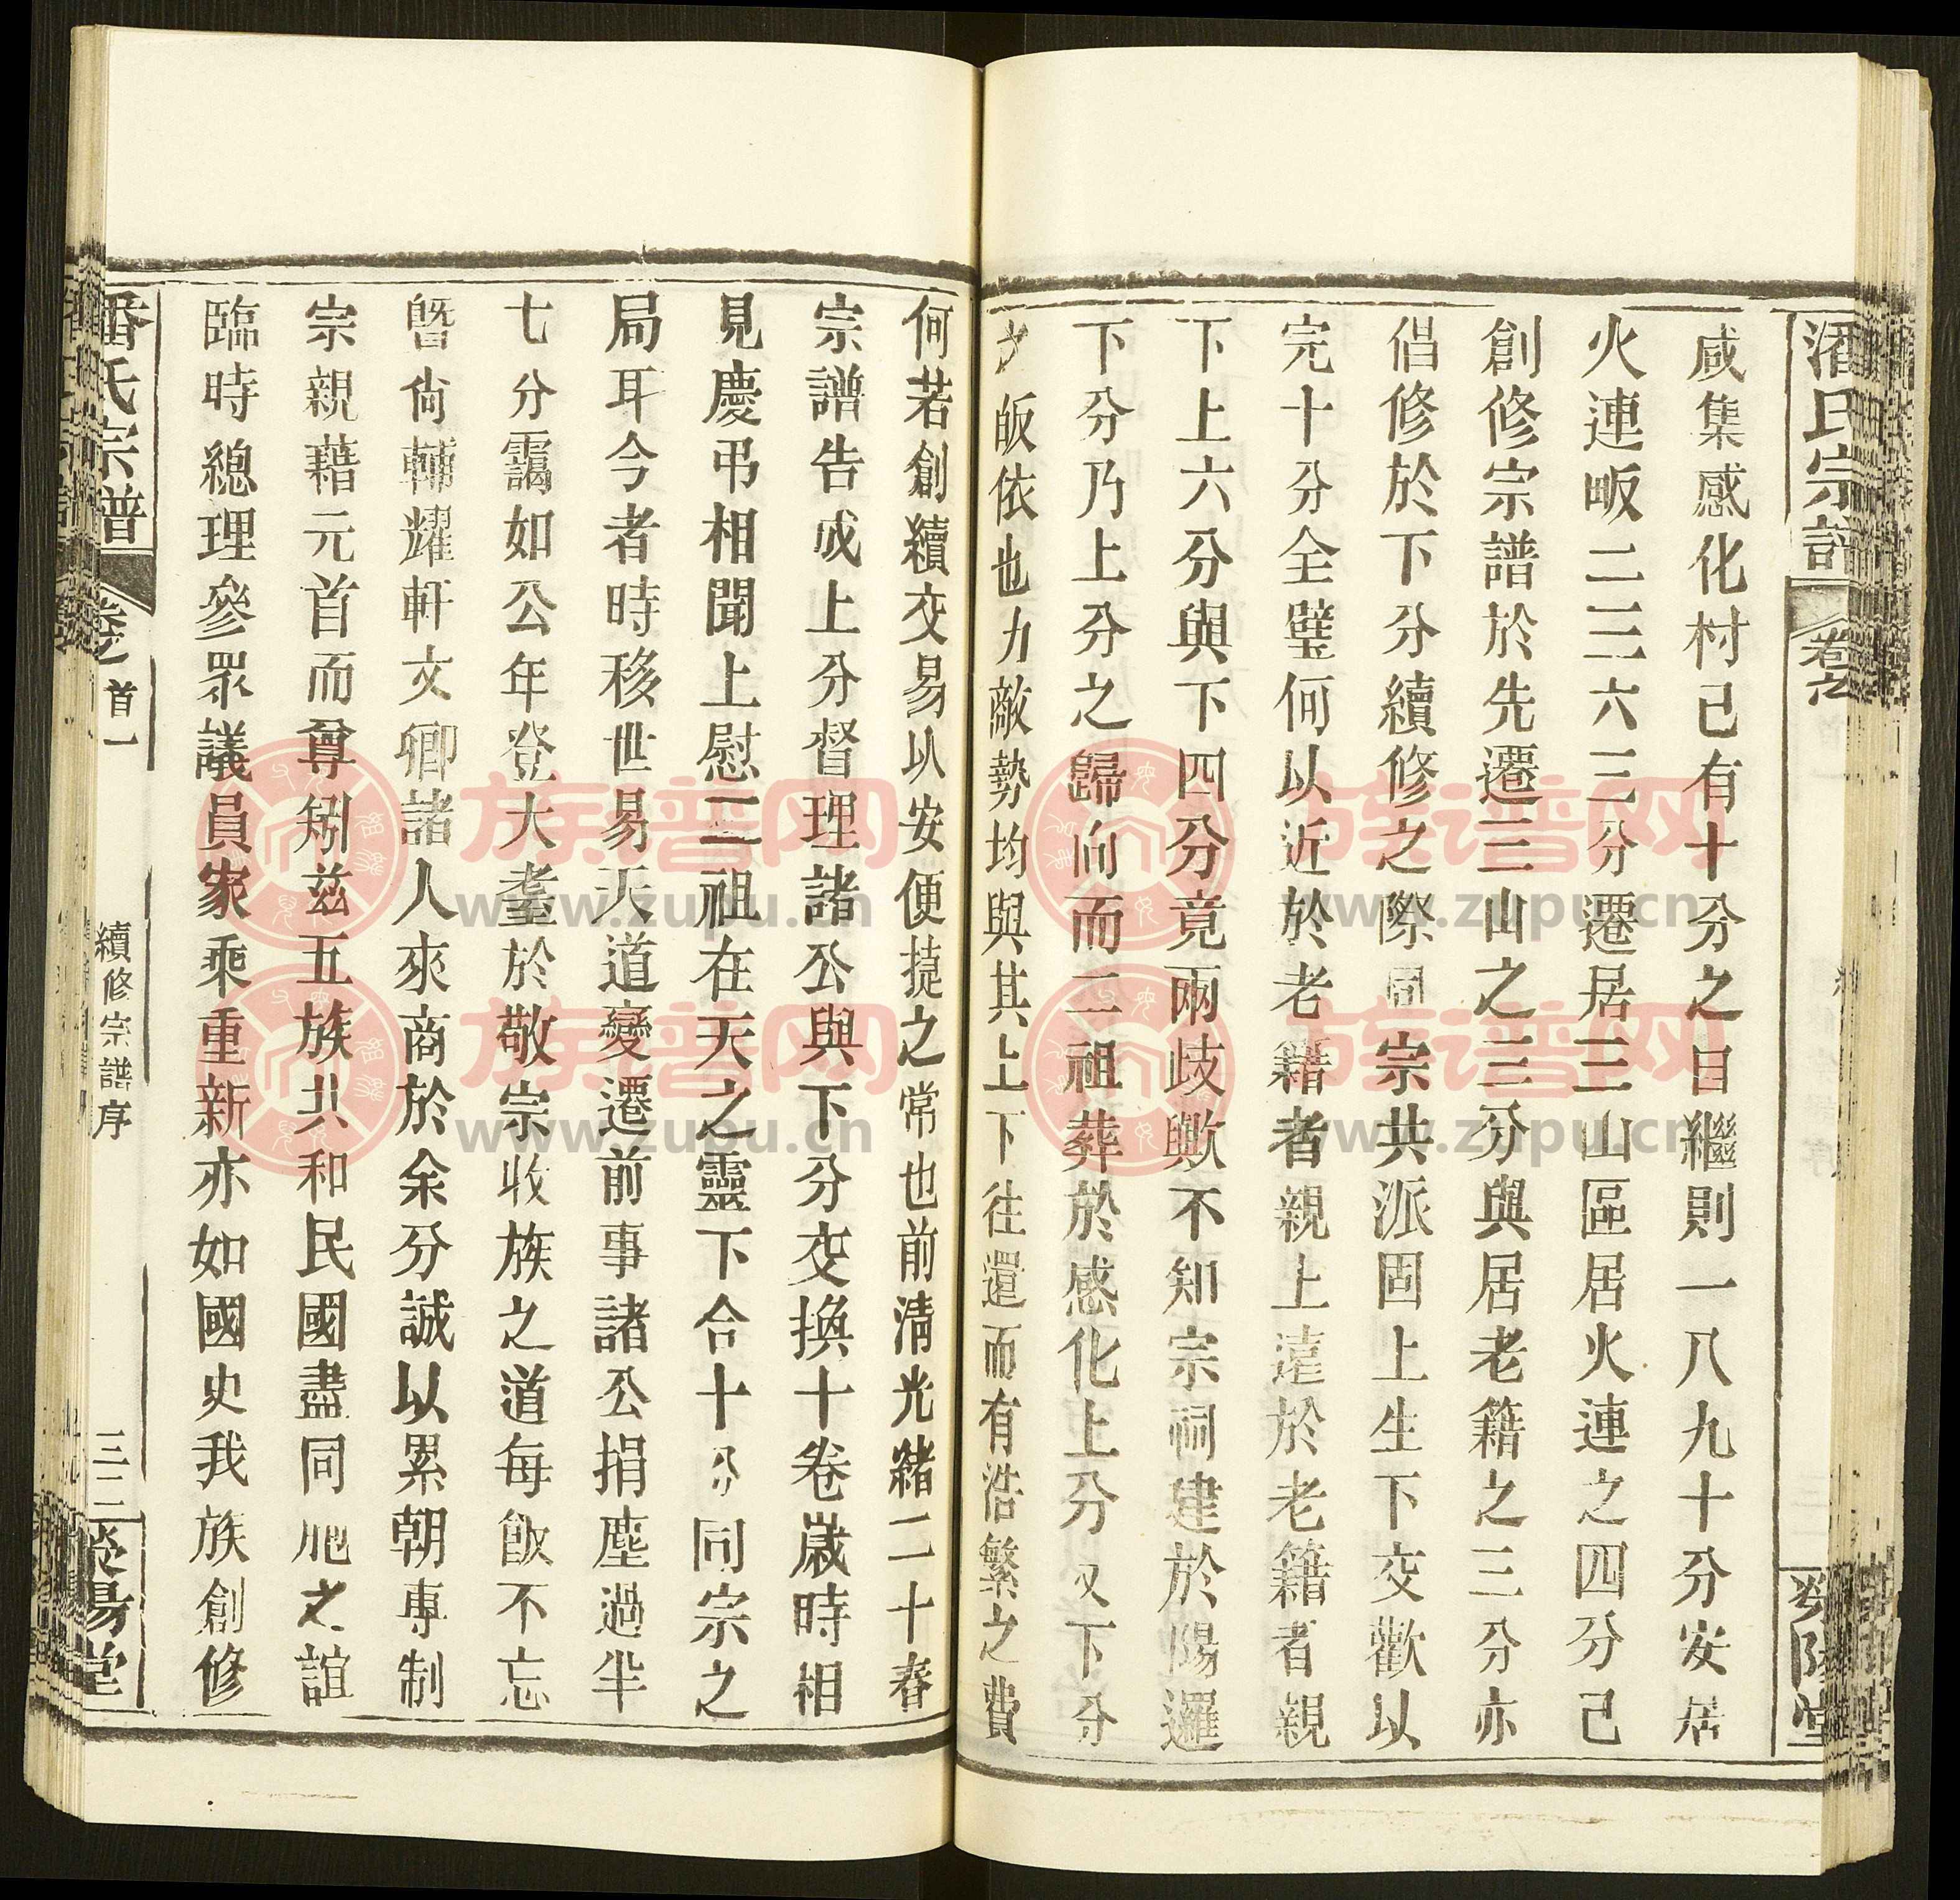 潘氏宗譜
卷之
滎陽堂
咸集感化村己有十分之目繼則一八九十分安居
火連畈二三六三分遷居三山區居火連之四分己
創修宗譜於先遷三山之三分與居老籍之三分亦
倡修於下分續修之際同宗共派固上生下交歡以
完十分全璧何以近於老籍者親上遠於老籍者親
下上六分與下四分竟兩歧歟不知宗祠建於陽邏
下分乃上分之歸向而二祖葬於感化上分又下分
之皈依也力敵勢均與其上下往還而有浩繁之費
何若創續交易以安便㨗之常也前清光緒二十春
宗譜告成上分督理諸公與下分交換十卷歲時相
見慶弔相聞上慰二祖在天之靈下合十分同宗之
局耳今者時移世易天道變遷前事諸公捐塵過半
七分靄如公年登大耋於敬宗收族之道每飯不忘
暨尚輔耀軒文卿諸人來商於余分誠以累朝專制
宗親藉元首而尊矧茲五族共和民國盡同胞之誼
臨時總理參眾議員家乘重新亦如國史我族創修
潘氏宗譜
卷之首一
續修宗譜序
三二
滎陽堂
族谱网
www.zupu.cn
族谱网
www.zupu.cn
族谱网
www.zupu.cn
族谱网
www.zupu.cn